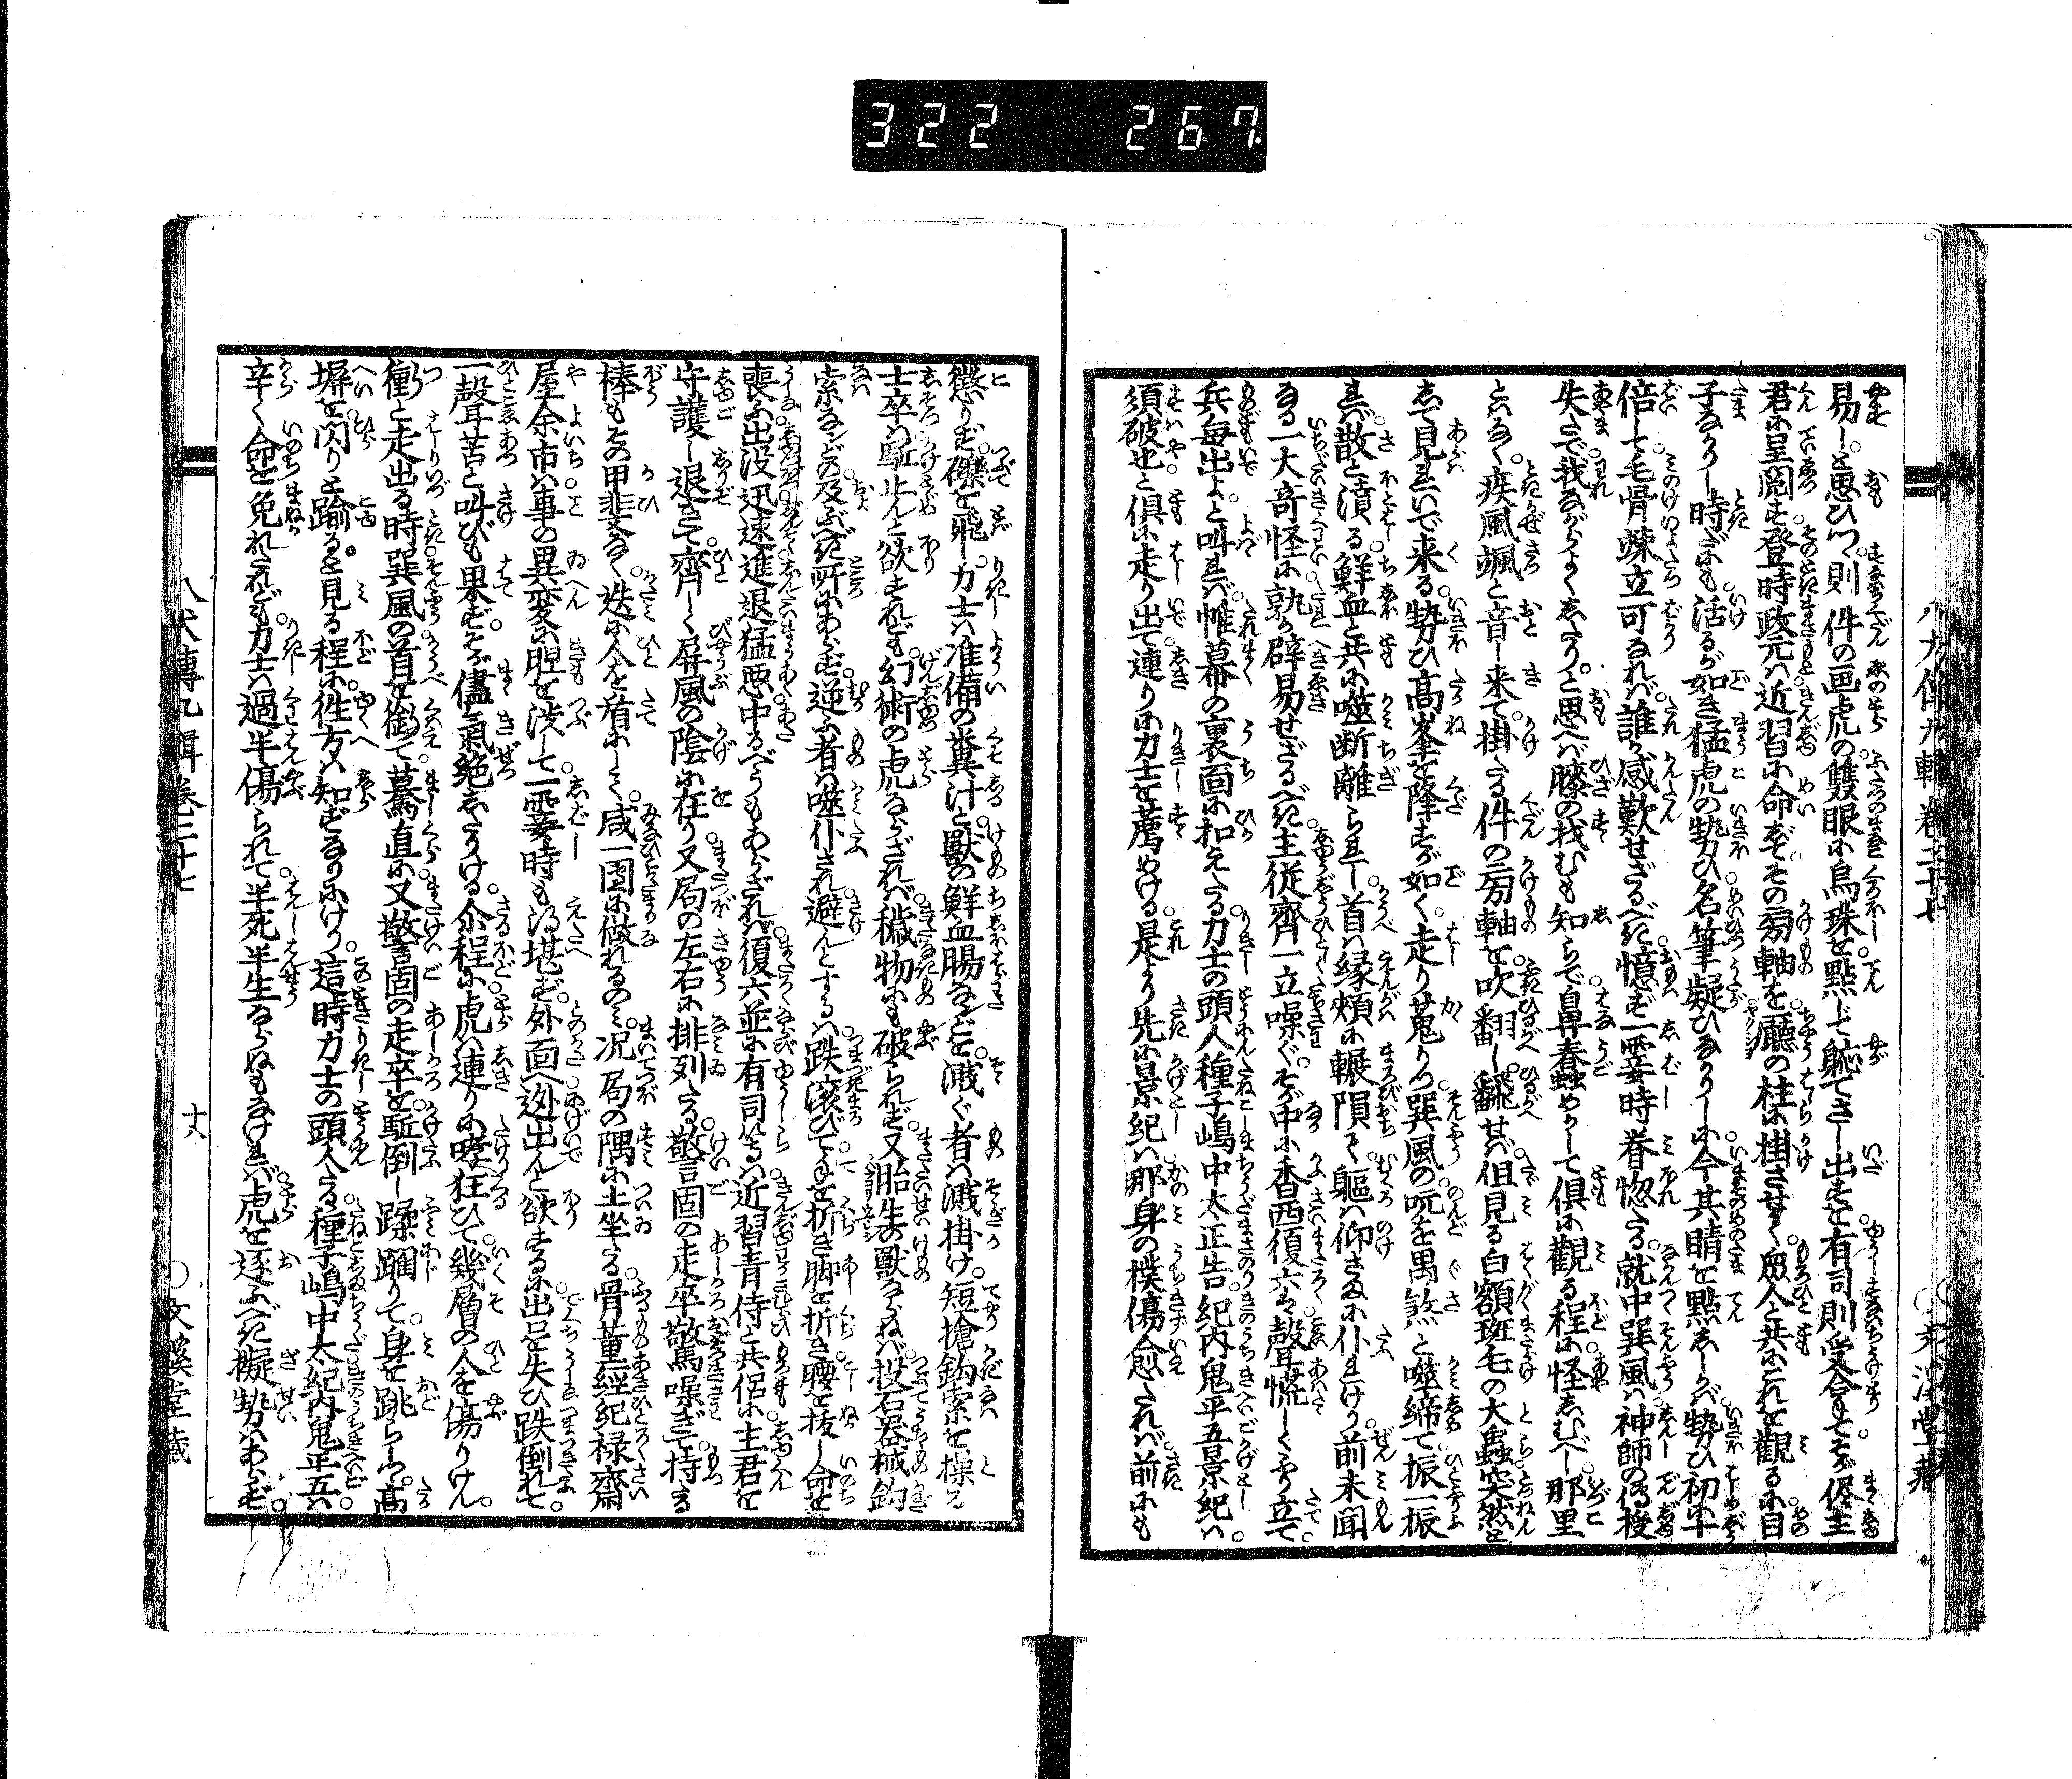 322 267
易しと思ひつ。則件の画虎の雙眼に烏珠を點して。軈てさし出すを有司則受拿てそが侭主
君に呈閲す。登時政元は近習に命じてその㓛軸を廳の柱に掛させて。衆人と共にこれを觀るに目
子なかりし時だにも活るが如き猛虎の勢ひ名筆疑ひなかりしに今其睛を點ししかば勢ひ初に十
倍して毛骨竦立可なれば。誰か感歎せざるべき憶ず一霎時眷惚たる。就中巽風は神師の傳授
失たで我ながらよくしたりと思へば膝の找むも知らで鼻春蟲めかして倶に觀る程に怪しむべし那里
とはなく疾風颯と音し来て掛たる件の軸を吹翻し飜せば但見る白額斑毛の大蟲突然と
して見れいで来る。勢ひ高峯を降すが如く。走り蒐りつ巽風の吭を禺煞と噬締て振一振
れば。散と濆る鮮血と共に噬断離られし首は縁頬に輾隕て軀は仰さまに仆れけり。前未聞
なる一大奇怪に孰か辟易せざるべき。主従齊一立噪ぐ。そが中に香西復六は聲慌しくふり立て
兵毎出よと叫れば帷幕の裏面に扣えたる力士の頭人種子嶋中太正告。紀内鬼平五景紀は
須破也と倶に走り出て連りに力士を薦めける是より先に景紀は那身の撲傷愈たれば前にも
懲りず。礫を飛し力士は准備の糞汁と獸の鮮血腸などを濺ぐ者は濺掛け。短搶鈎索を操る
士卒は駈とめんと欲すれども。幻術の虎ならざれば穢物にも破られず又胎生の獸ならねば投石器械鈎
索などの及ぶべき所にあらず。逆ふ者は噬仆され避んとするは跌滚びて手を折き脚を折き腰を抜し命を
喪ふ出没迅速進退猛悪中るべうもあらざれば。復六並に有司等は近習青侍と共侶に主君を
守護し退きて。齊しく屏風の陰に在り又局の左右に排列たる警固の走卒驚噪ぎて持たる
棒もその甲斐なく。迭に人を盾にしく。咸一團に做れるのみ。况局の隅に土坐たる骨董經紀禄齋
屋余市は事の異変に胆を潰して一霎時も得堪ず。外面へ迯出んと欲するに出口を失ひ跌倒れて。
一聲苦と叫びも果ずそが儘氣絶したりける。尒程に虎は連りに哮狂ひて幾層の人を傷りけん。
衝と走出る時巽風の首を銜て驀直に。又警固の走卒を駈倒し蹂躙りて身を跳らしつ。高
塀を閃りと踰ると見る程に。徃方は知ずなりにけり。這時力士の頭人たる種子嶋中太紀内鬼平五は
辛く命を免れたれども。力士は過半傷られて半死半生ならぬもなければ虎を逐ふべき擬勢はあらず。
八犬傳九輯卷二十七
文溪堂藏
八犬傳九輯卷二十七
十六
○文溪堂藏